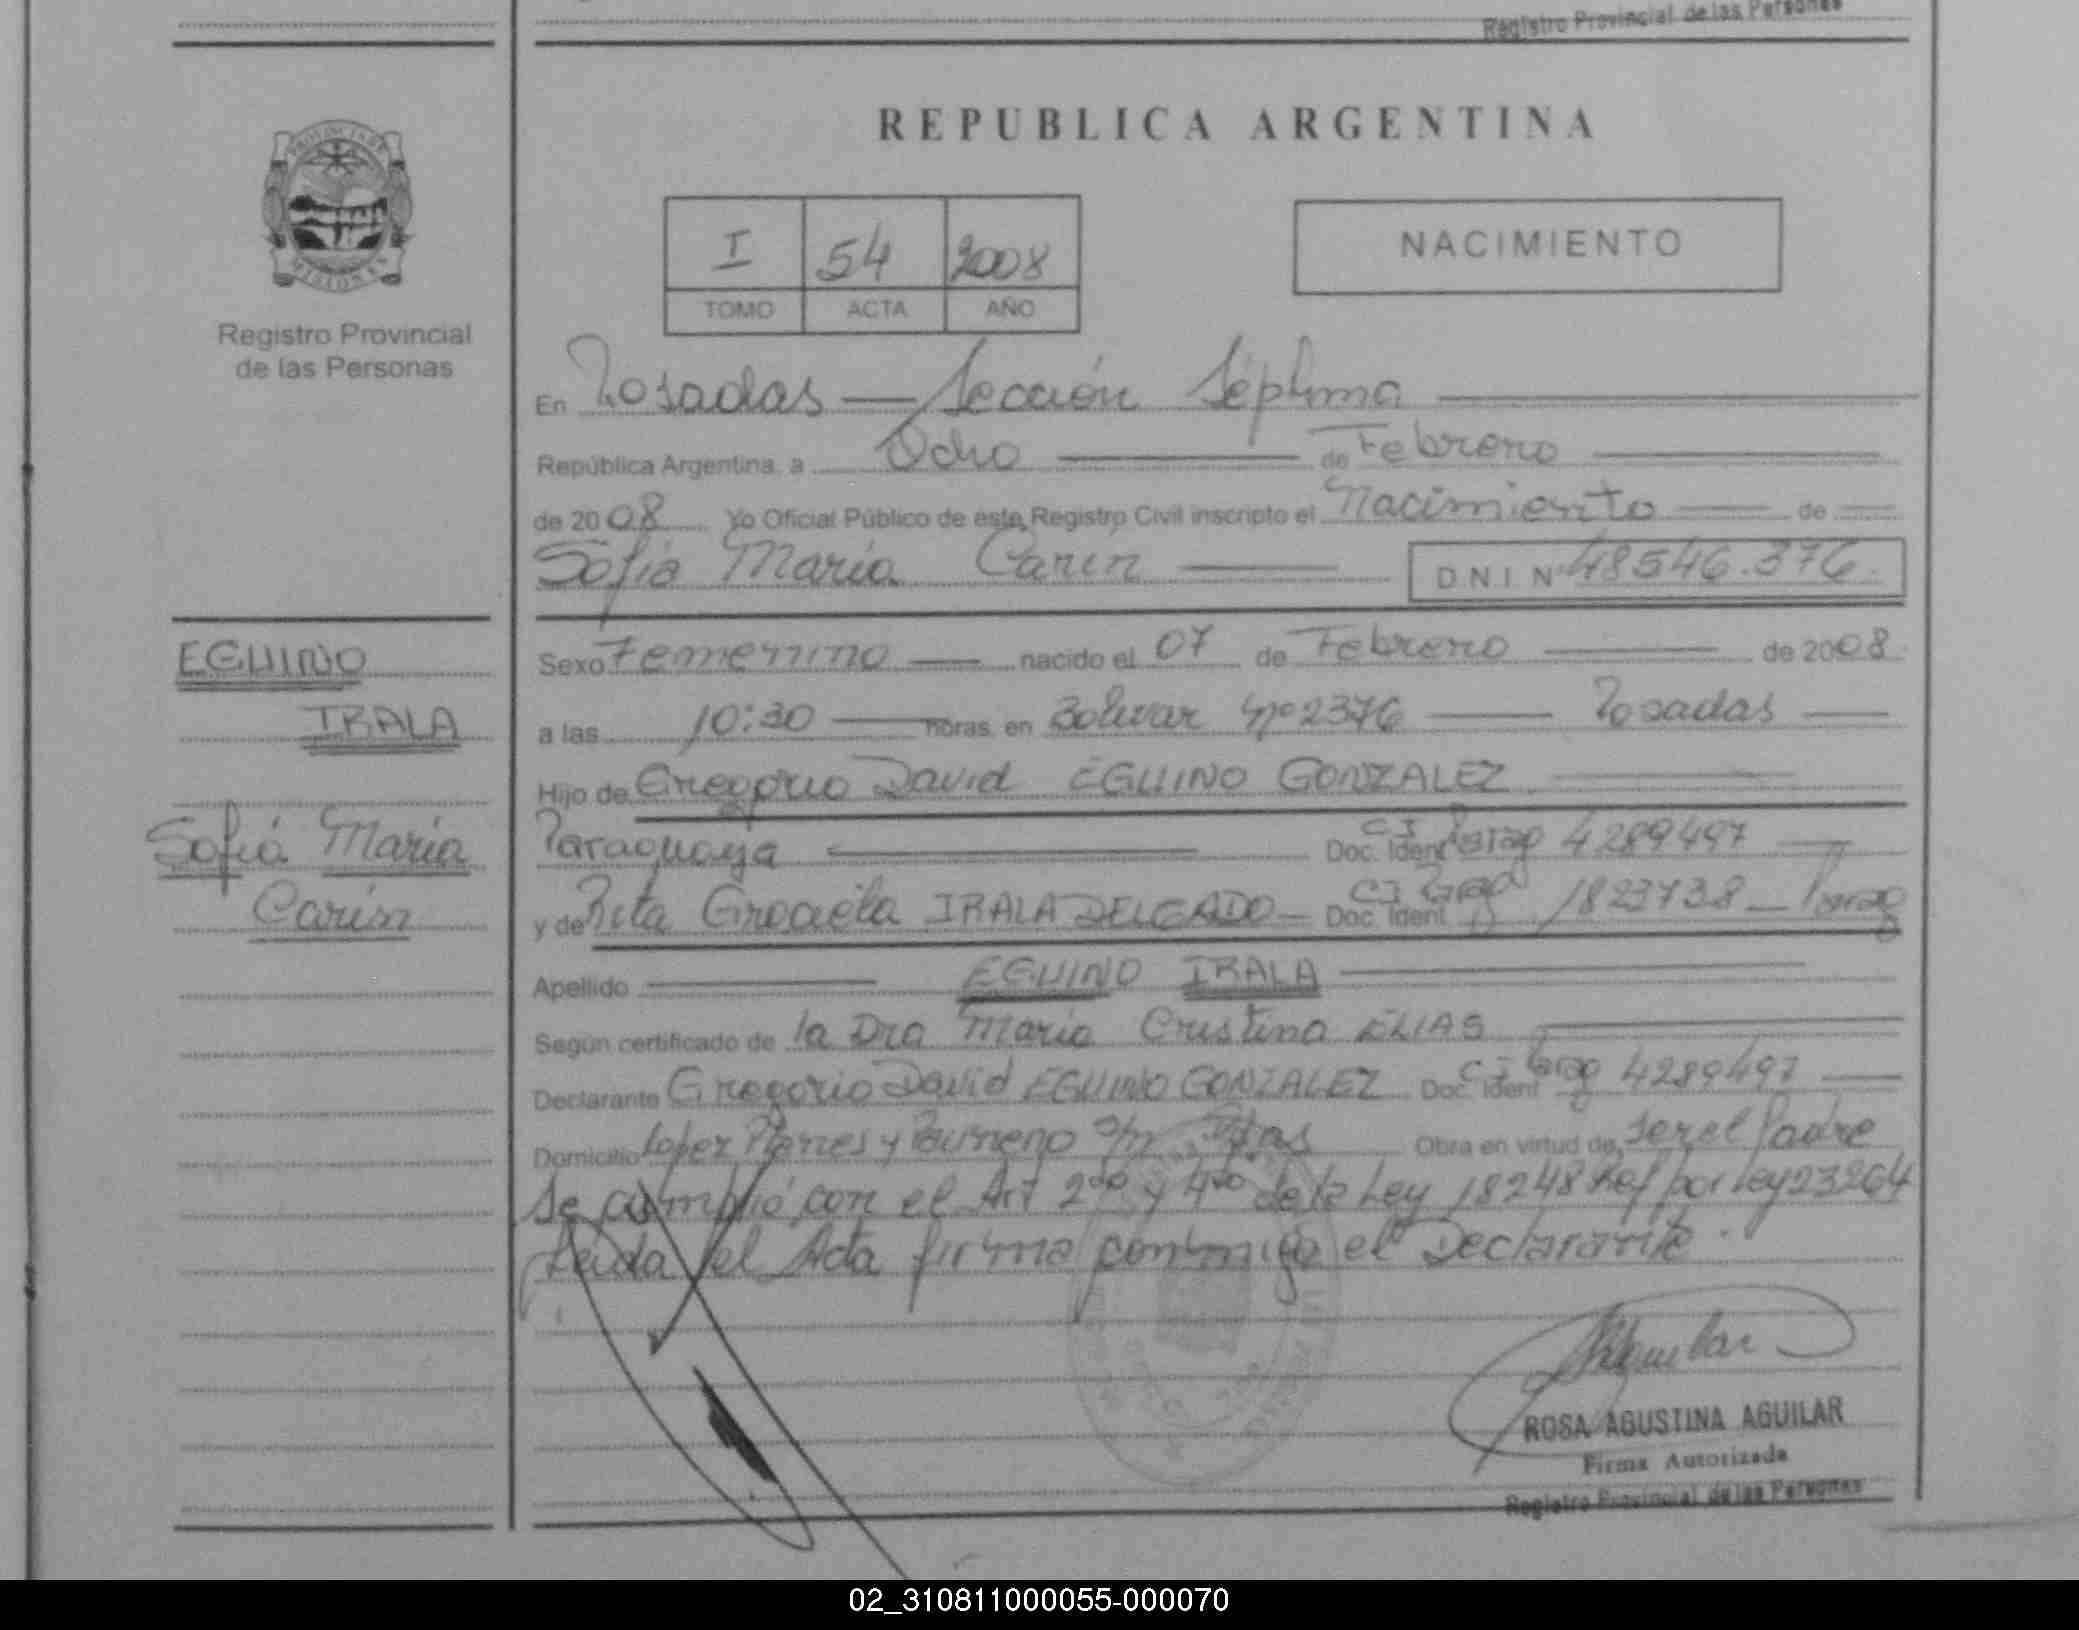 Registro Provincial de las Personas
PROVINCIA DE
MISIONES
Registro Provincial
de las Personas
REPUBLICA ARGENTINA
I 54 2008
TOMO ACTA AÑO
NACIMIENTO
En Posadas — Sección Séptima
República Argentina, a Ocho de Febrero
de 2008 Yo Oficial Público de este Registro Civil inscripto el Nacimiento de
Sofia María Carin DNI Nº 48546.376.
EGUINO
IRALA
Sofiá María
Carin
Sexo Femenino nacido el 07 de Febrero de 2008
a las 10:30 horas, en Bolivar Nº 2376 Posadas
Hijo de Gregorio David EGUINO GONZALEZ
Paraguaya Doc. Ident CI Parag 4289497
y de Rita Graciela IRALA DELGADO Doc. Ident CI Parag 1823738 — Parag
Apellido EGUINO IRALA
Según certificado de la Dra María Cristina ELIAS
Declarante Gregorio David EGUINO GONZALEZ Doc. Ident CI Parag 4289497
Domicilio Lopez Planes y s/n Pdas Obra en virtud de, ser el Padre
Se cumplió con el Art 2do y 4to de la Ley 18248 Ref por Ley 23264
Leida el Acta firma conmigo el Declarante.
Aguilar
ROSA AGUSTINA AGUILAR
Firma Autorizada
Registro Provincial de las Personas
02_310811000055-000070